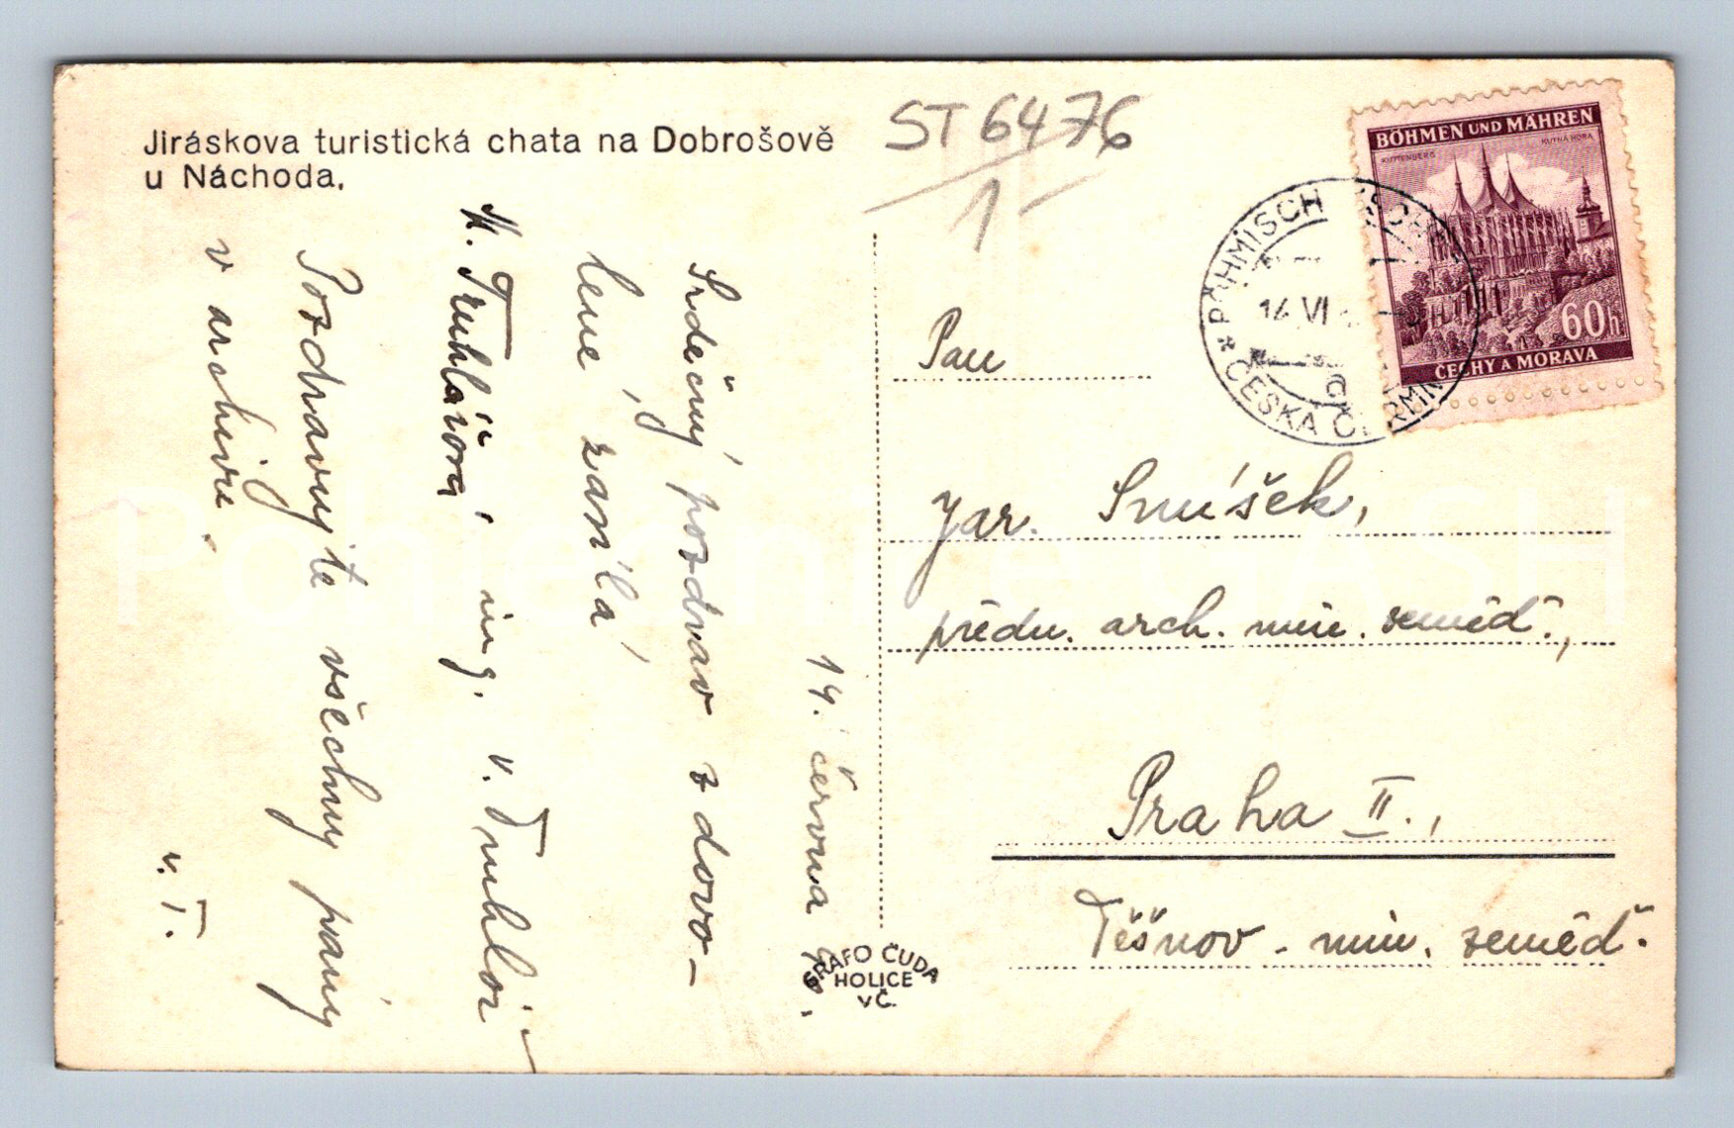 Jiráskova turistická chata na Dobrošově
u Náchoda.
ST 6476
1
BÖHMEN UND MÄHREN
KUTTENBERG
KUTNÁ HORA
60h
ČECHY A MORAVA
BÖHMISCH
14 VI
ČESKÁ
14. června
Srdečný pozdrav z dovo-
lené zasílá
M. Truhlářová ing. V. Truhlář
Pozdravujte všechny pány
v archivu.
V. T.
Pan
Jar. Smíšek,
předn. arch. min. zeměď.,
Praha II.,
Těšnov - min. zeměď.
GRAFO ČUDA
HOLICE
v Č.